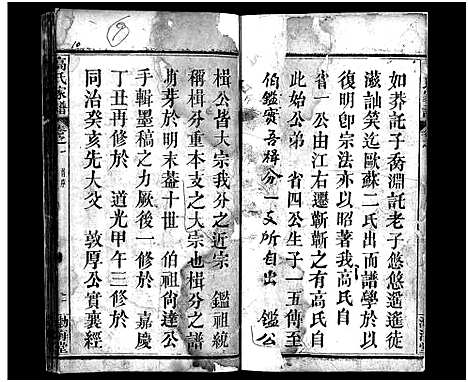 如莽託子喬淵託老子悠悠遥遥徒
滋訕笑迄歐蘇二氏出而譜學於以
復明卽宗法亦以昭著我高氏自
省一公由江右遷蘄蘄之有高氏自
此始公弟 省四公生子一五傳至
伯鑑賓吾楫分一支所自出 鑑公
楫公皆大宗我分之近宗 鑑祖統
稱楫分重本支之大宗也楫分之譜
萌芽於明末葢十世 伯祖尙達公
手輯墨稿之力厥後一修於 嘉慶
丁丑再修於 道光甲午三修於
同治癸亥先大父 敦厚公實襄經
高氏家譜 卷之一
渤海堂